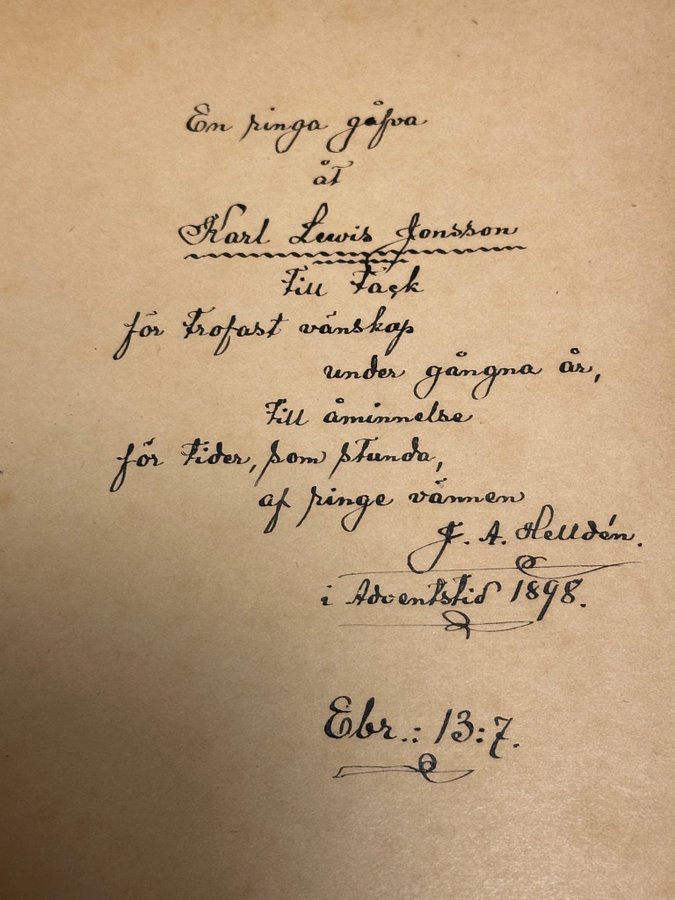 En ringa gåfva
åt
Karl Lewis Jonsson
till tack
för trofast vänskap
under gångna år,
till åminnelse
för tider, som stunda,
af ringe vännen
J. A. Helldén.
i Adventstid 1898.
Ebr.: 13:7.